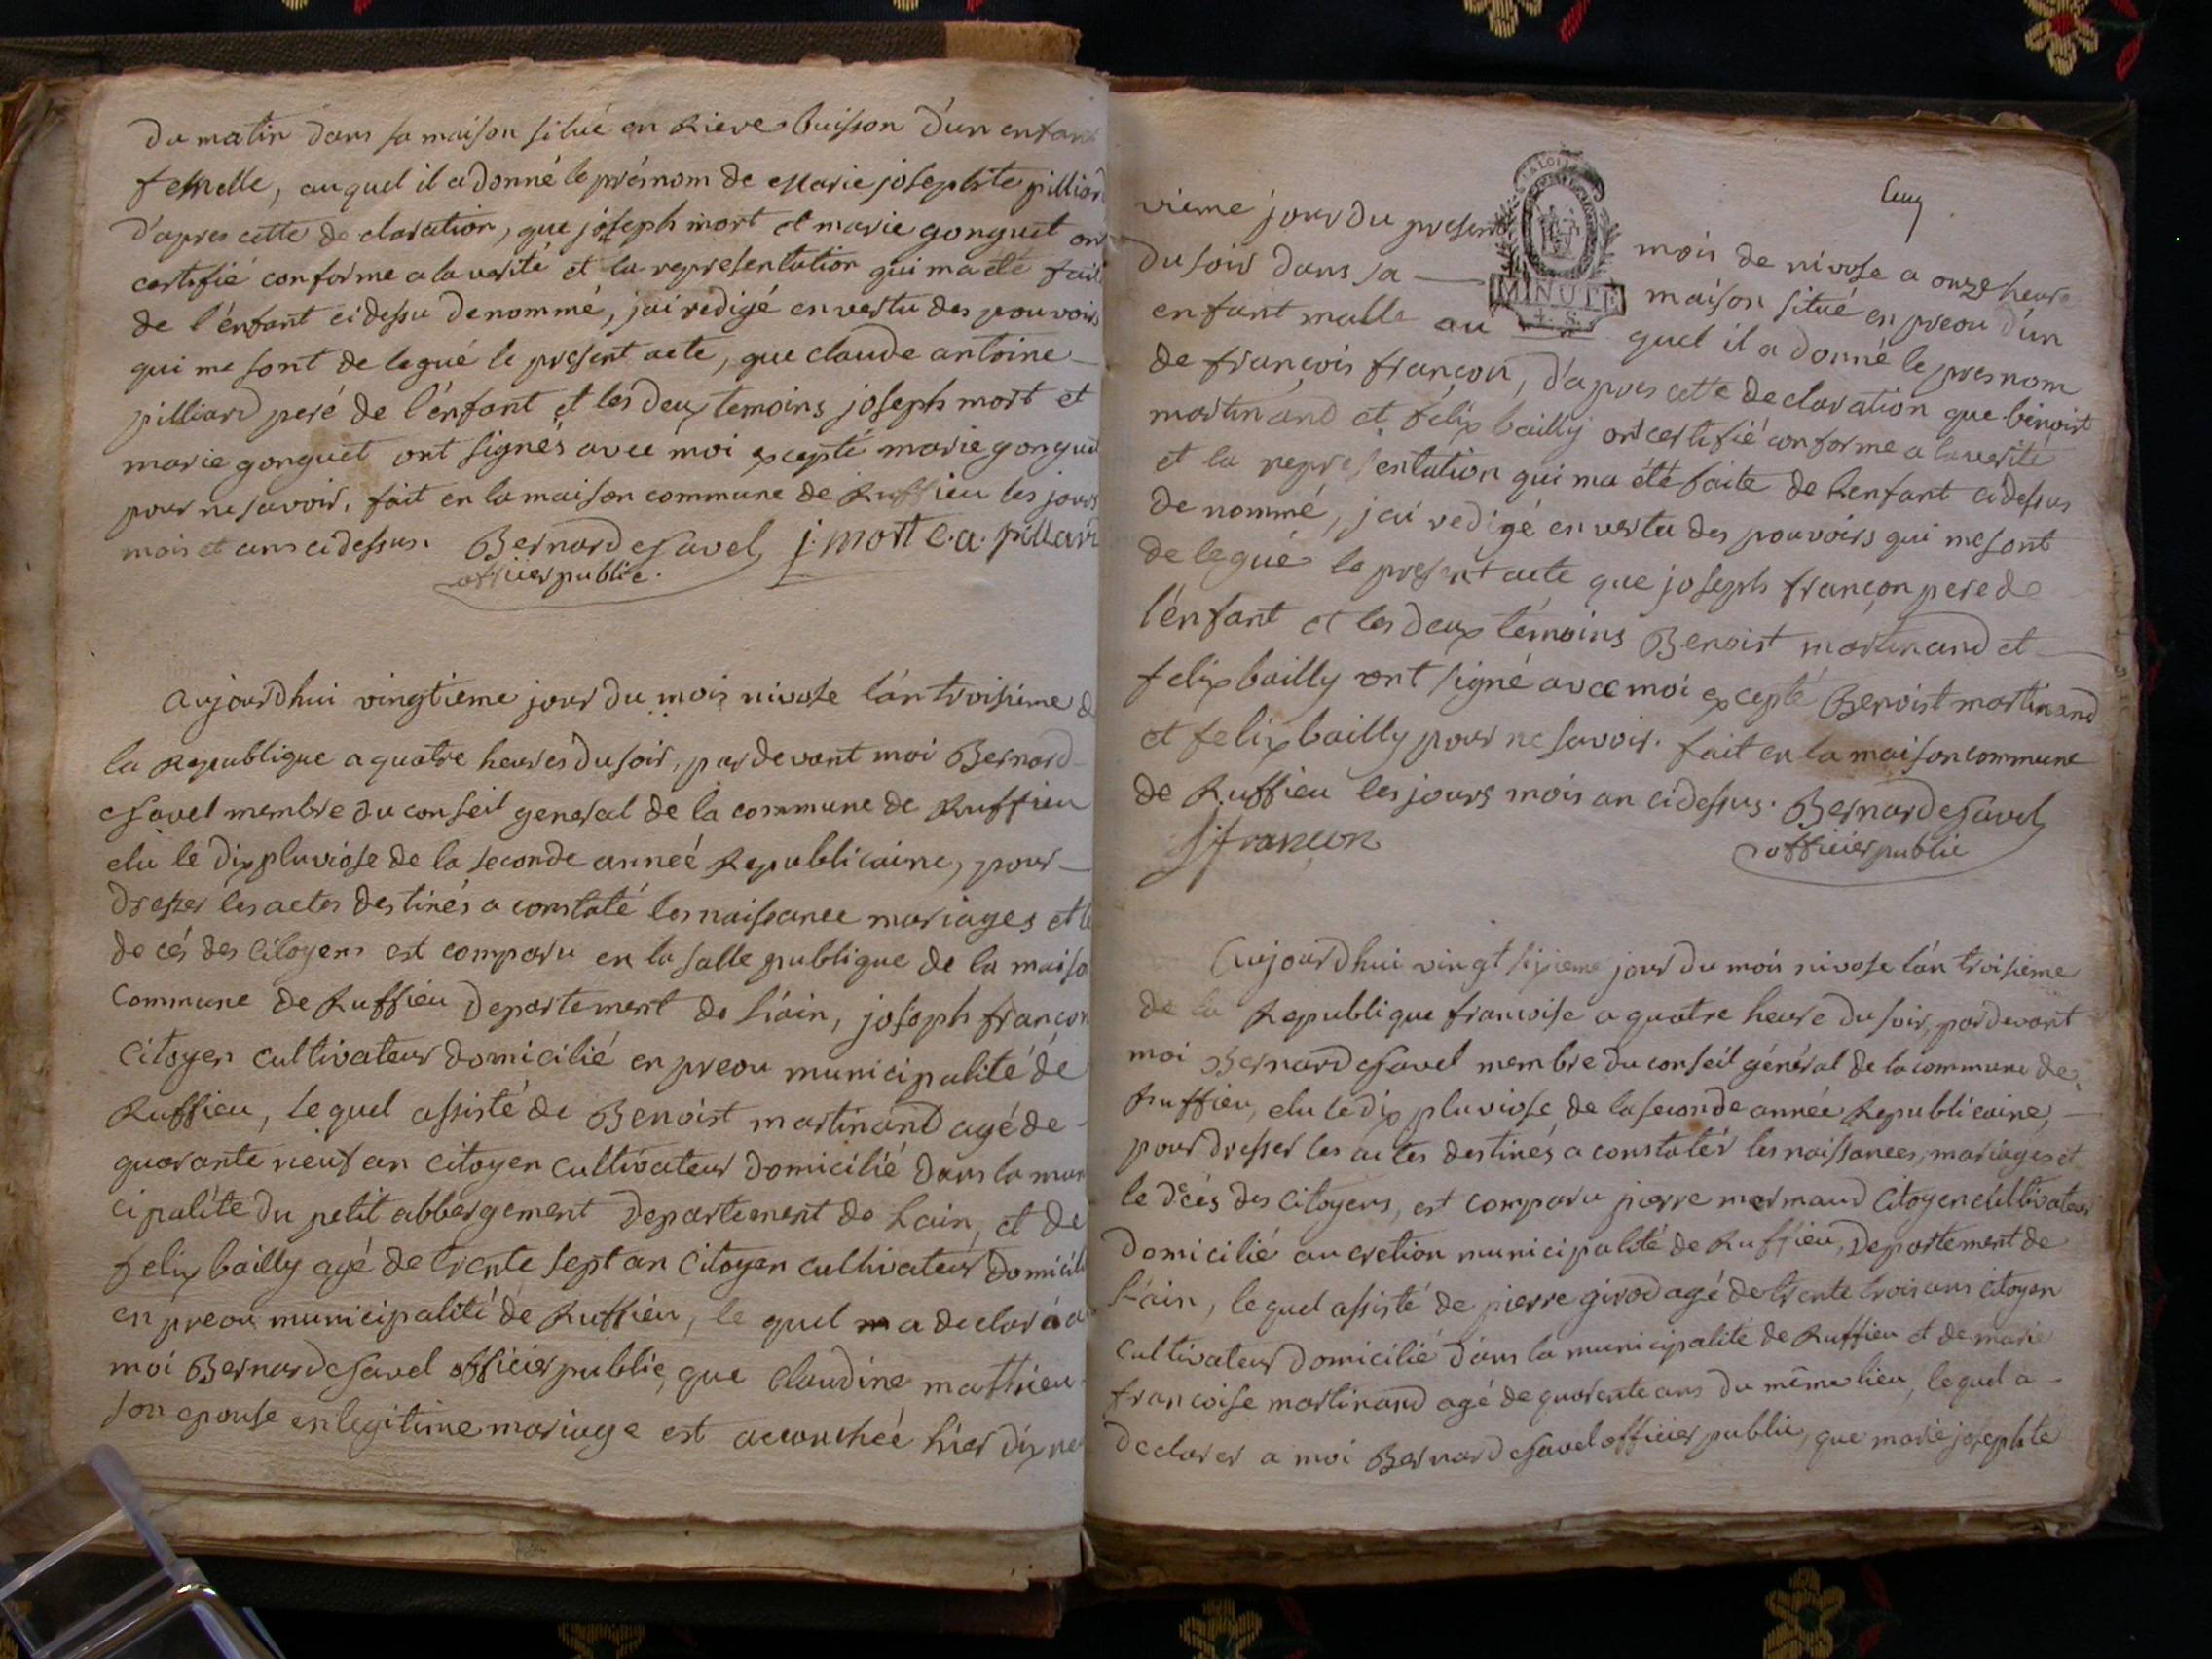 du matin dans sa maison situé en Rieve buisson d'un enfant
femelle, auquel il a donné le présnom de Marie josephte pilliard
d'apres cette declaration, que joseph mort et marie gonguet on
certifié conforme a la verité et la representation qui ma été fait
de l'énfant ci dessu denommé, jai redigé en vertu des pouvoirs
qui me sont delegué le present acte, que claude antoine
pilliard peré de l'énfant et les deux temoins joseph mort et
marie gonguet ont signés avec moi excepté marie gonguet
pour ne savoir. fait en la maison commune de Ruffieu les jours
mois et ans ci dessus. Bernard esavel j. mort c. a. pillard
officier public.
aujourdhui vingtieme jour du mois nivose l'án troisiéme d
la Republique a quatre heures du soir, par devant moi Bernard
esavel membre du conseil general de la commune de Ruffieu
elu le dix pluviose de la seconde anneé Republicaine, pour
dresser les actes destinés a constaté les naissance mariages et le
decés des Citoyens est comparu en la salle publique de la maiso
commune de Ruffieu departement de l'ain, joseph françon
Citoyen Cultivateur domicilié en preou municipalité de
Ruffieu, lequel assisté de Benoist martinand agé de
quarante neuf an Citoyen Cultivateur domicilié dans la muni
cipalité du petit abbergement departement de Lain, et de
felix bailly agé de trente sept an Citoyen cultivateur domicili
en preou municipalité de Ruffieu, le quel a declaré a
moi Bernard esavel officier public, que Claudine mathieu
son epouse en legitime mariage est accouchée hier dix neu
Cent
vieme jour du present mois de nivose a onze heure
du soir dans sa maison situé en preou d'un
MINUTE
enfant malle au quel il a donné le presnom
de françois françon, d'apres cette declaration que benoist
martinand et félix bailly ont certifié conforme a la verité
et la representation qui ma été faite de l'enfant ci dessus
denommé, jai redigé en vertu des pouvoirs qui me sont
delegué le present acte que joseph françon pere de
l'énfant et les deux témoins Benoist martinand et
felix bailly ont signé avec moi excepté Benoist martinand
et felix bailly pour ne savoir. fait en la maison commune
de Ruffieu les jours mois an ci dessus. Bernard esavel
j francon officier public
Aujourdhui vingt sixieme jour du mois nivose l'án troisiéme
de la Republique francoise a quatre heure du soir, par devant
moi Bernard esavel membre du conseil général de la commune de
Ruffieu, elu le dix pluviose de la seconde année Republicaine,
pour dresser les actes destinés a constatér les naissances, mariages et
le décés des Citoyens, est comparu pierre mermand Citoyen cultivateur
domicilié au cretion municipalité de Ruffieu, departement de
l'ain, lequel assisté de pierre girod agé de trente trois ans Citoyen
Cultivateur domicilié dans la municipalité de Ruffieu et de marie
francoise martinand agé de quarente ans du même lieu, lequel a
declarer a moi Bernard esavel officier public, que marie josephte